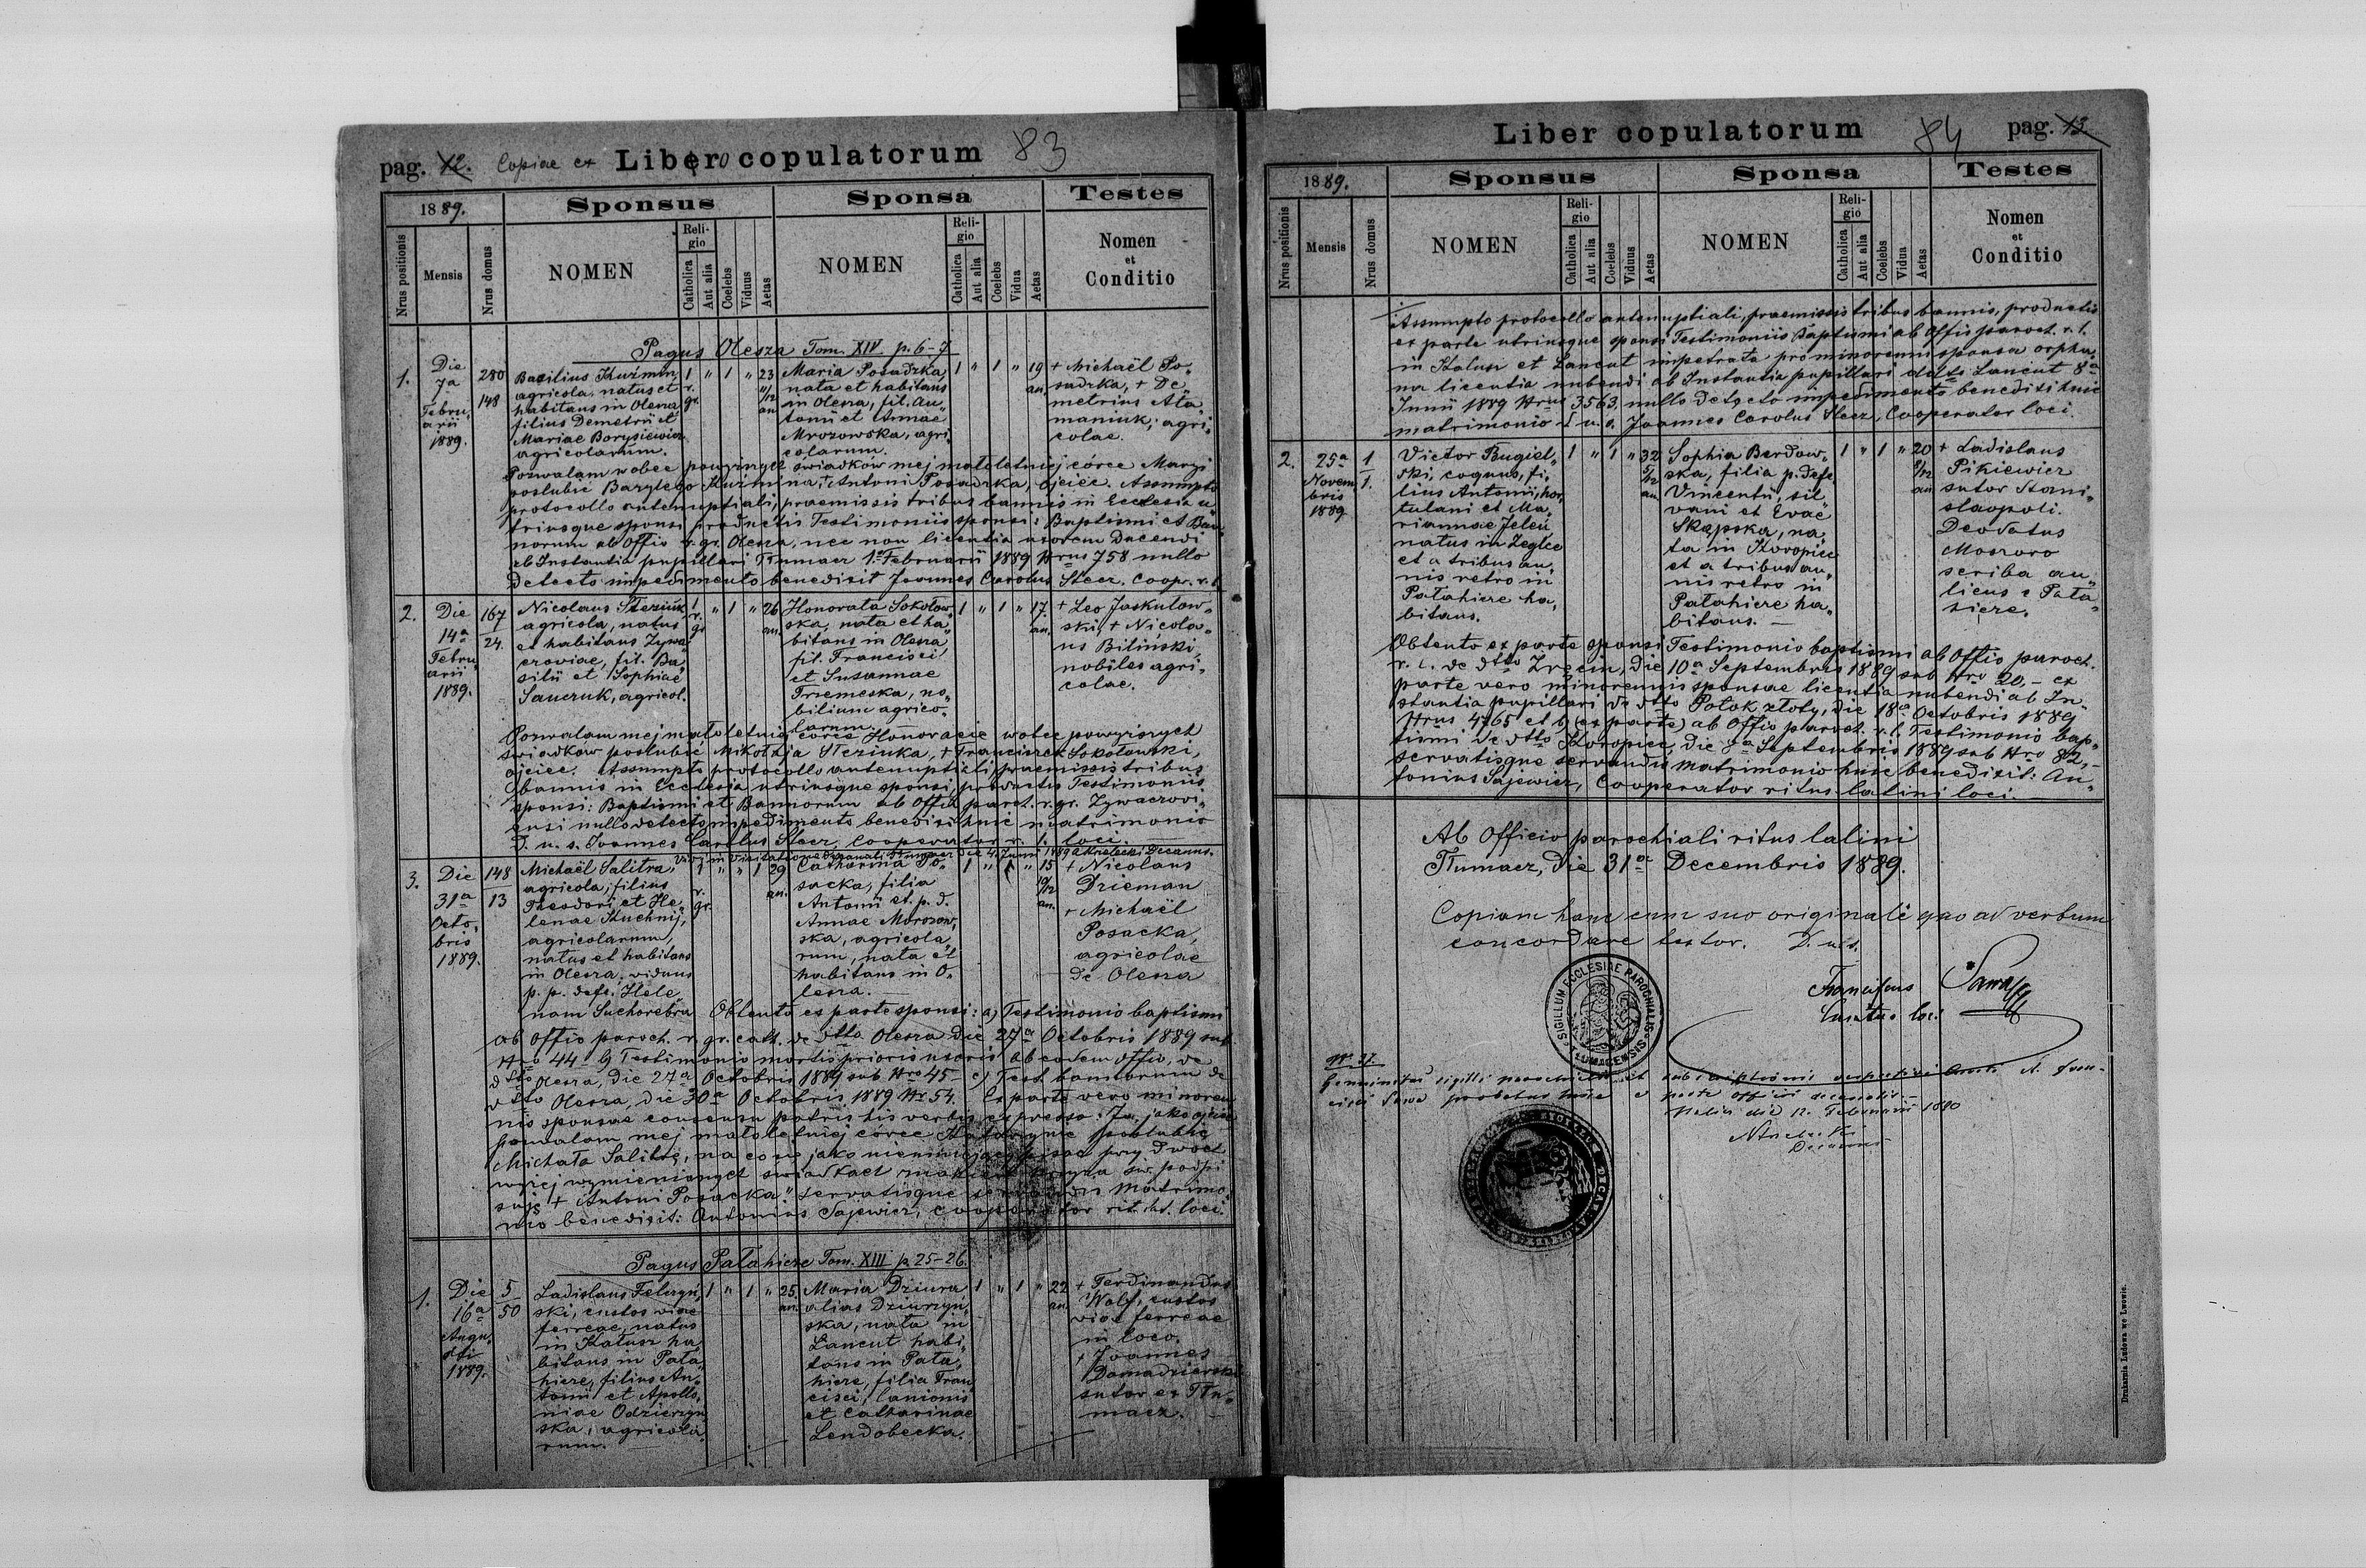 pag. 12. Copiae ex Libero copulatorum 83
1889.
Sponsus
Sponsa
Testes
Nrus positionis
Mensis
Nrus domus
NOMEN
Religio
Catholica
Aut alia
Coelebs
Viduus
Aetas
NOMEN
Religio
Catholica
Aut alia
Coelebs
Vidua
Aetas
Nomen
et
Conditio
Pagus Olesza Tom. XIV p. 6-7
1.
Die
7a
Febru„
arii
1889.
280
148
Basilius Kuźmin,
agricola, natus et
habitans in Olesza,
filius Demetrii et
Mariae Borysiewicz
agricolarum.
1
r.
gr.
"
1
"
23
11/12
an
Maria Posadzka,
nata et habitans
in Olesza, fil. An„
tonii et Annae
Mrozowska, agri„
colarum.
1
"
1
"
19
an.
+ Michaël Po„
sadzka, + De„
metrius Ata„
maniuk, agri„
colae.
Pozwalam wobec powyższych świadków mej małoletniej córce Maryi
poślubić Bazylego Kuźmina, + Antoni Posadzka, ojciec. Assumpto
protocollo antenuptiali, praemissis tribus bannis in Ecclesia u„
triusque sponsi productis Testimoniis sponsi: Baptismi et Ban„
norum ab Offio r. gr. Olesza, nec non licentia uxorem ducendi
ab Instantia pupillari Tłumacz 1a Februarii 1889 Nrus 758 nullo
detecto impedimento benedixit Joannes Carolus Stecz. Coop. r. l.
2.
Die
14a
Febru„
arii
1889.
167
24.
Nicolaus Steziuk
agricola, natus
et habitans Żywa„
czoviae, fil. Ba„
silii et Sophiae
Sauczuk, agricol.
1
r.
gr
"
1
"
26
an.
Honorata Sokołow„
ska, nata et ha„
bitans in Olesza
fil. Francisci
et Susannae
Trzemeska, no„
bilium agrico„
larum.
1
"
1
"
17.
an.
+ Leo Jaskułow„
ski, + Nicola„
us Biliński
nobiles agri„
colae.
Pozwalam mej małoletniej córce Honoracie wobec powyższych
świadków poślubić Mikołaja Steziuka, + Franciszek Sokołowski,
ojciec. Assumpto protocollo antenuptiali, praemissis tribus
bannis in Ecclesia utriusque sponsi, productis Testimoniis
sponsi: Baptismi et Bannorum ab Offio paroch. r. gr. Żywaczovi„
ensi nullo detecto impedimento benedixi huic matrimonio
D. u. s. Joannes Carolus Stecz, Cooperator r. l. loci.
Vidi in Visitatione Decanali Tłumacz die 4. Junii 1889 Decanus.
3.
Die
31a
Octo„
bris
1889.
148
13
Michaël Salitra,
agricola, filius
Theodori et He„
lenae Kuchnij,
agricolarum,
natus et habitans
in Olesza, viduus
p. p. defc. Hele„
nam Suchorebra
1
r.
gr.
"
"
1
29
an.
Catharina Po„
sacka, filia
Antonii et p. d.
Annae Morozow„
ska, agricola„
rum, nata et
habitans in O„
lesza.
1
"
1
"
15
10/12
an.
+ Nicolaus
Dzieman
+ Michaël
Posacka,
agricolae
de Olesza
Obtento ex parte sponsi: a) Testimonio baptismi
ab Offio paroch. r. gr. cath. de dtto Olesza die 27a Octobris 1889 sub
Nro 44 b) Testimonio mortis prioris uxoris ab eodem offio, de
dtto Olesza, die 27a Octobris 1889 sub Nro 45 - c) Test. bannorum de
dtto Olesza, die 30a Octobris 1889 Nr 54. Ex parte vero minoren„
nis sponsae consensu patris his verbis expresso: Ja, jako ojciec
pozwalam mej małoletniej córce Katarzynie poślubić
Michała Salitrę, na co się jako nieumiejący pisać przy dwóch
wyżej wymienionych świadkach znakiem krzyża św. podpi„
suję + Antoni Posacka." servatisque servandis matrimo„
nio benedixit: Antonius Sajewicz, cooperator rit. lat. loci.
Pagus Pałahicze Tom. XIII p. 25-26.
1.
Die
16a
Augu„
sti
1889.
5
50
Ladislaus Felczyń„
ski, custos viae
ferreae, natus
in Kałusz ha„
bitans in Pała„
hicze, filius An„
tonii et Apollo„
niae Odzierzyń„
ska, agricola„
rum.
1
"
1
"
25.
an.
Maria Dziura
alias Dziurzyń„
ska, nata in
Łancut habi„
tans in Pała„
hicze, filia Fran„
cisci, lanionis
et Catharinae
Lendobecka.
1
"
1
"
22
an
+ Ferdinandus
Wolf, custos
viae ferreae
in loco.
+ Joannes
Domadzierski
sutor ex Tłu„
macz.
Liber copulatorum 84 pag. 13.
1889.
Sponsus
Sponsa
Testes
Nrus positionis
Mensis
Nrus domus
NOMEN
Religio
Catholica
Aut alia
Coelebs
Viduus
Aetas
NOMEN
Religio
Catholica
Aut alia
Coelebs
Vidua
Aetas
Nomen
et
Conditio
Assumpto protocollo antenuptiali, praemissis tribus bannis, productis
ex parte utriusque sponsi Testimoniis Baptismi ab Offis paroch. r. l.
in Kałusz et Łancut impetrata pro minorenni sponsa orpha„
na licentia nubendi ab Instantia pupillari ddto Łancut 8a
Junii 1889 Nrus 3563. nullo detecto impedimento benedixi huic
matrimonio d. u. s. Joannes Carolus Stecz, Cooperator loci.
2.
25a
Novem„
bris
1889
1
1.
Victor Bugiel„
ski, coquus, fi„
lius Antonii, hor„
tulani et Ma„
riannae Jeleń
natus in Zeglce
et a tribus an„
nis retro in
Pałahicze ha„
bitans.
1
"
1
"
32
5/12
an
Sophia Berdow„
ska, filia p. defc.
Vincentii, sil„
vani et Evae
Skąpska, na„
ta in Koropiec
et a tribus an„
nis retro in
Pałahicze ha„
bitans. —
1
"
1
"
20
8/12
an
+ Ladislaus
Pikiewicz
sutor Stani„
slaopoli.
Deodatus
Moszoro
scriba au„
licus e Pała„
hicze.
Obtento ex parte sponsi Testimonio baptismi ab Offio paroch.
r. l. de dtto Zręcin, die 10a Septembris 1889 sub Nro 20, - ex
parte vero minorennis sponsae licentia nubendi ab In„
stantia pupillari de dtto Potok złoty, die 18a Octobris 1889
Nrus 4765 et b) (ex parte) ab Offio paroch. r. l. Testimonio bap„
tismi de dtto Koropiec, die Septembris 1889 sub Nro 82, -
servatisque servandis matrimonio huic benedixit: An„
tonius Sajewicz, Cooperator ritus latini loci.
Ab Officio parochiali ritus latini
Tłumacz, die 31a Decembris 1889.
Copiam hanc cum suo originali quo ad verbum
concordare testor. D. u. s.
Franciscus Sawa
Curatus loci
SIGILLUM ECCLESIAE PAROCHIALIS TŁUMACENSIS
Nr 37.
Genuinitas sigilli parochialis et subscriptionis
Decanus
Drukarnia Ludowa we Lwowie.